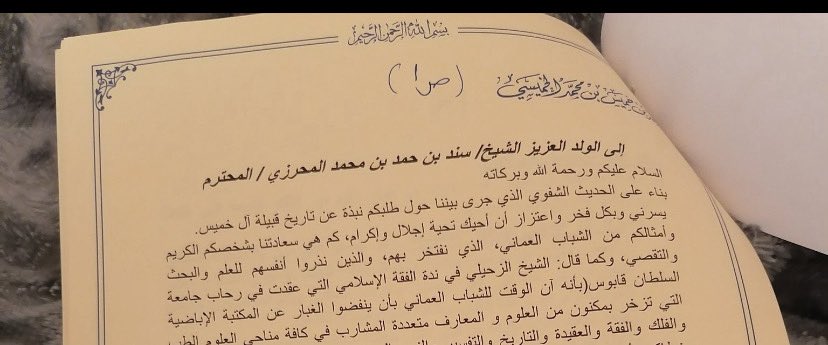 بسم الله الرحمن الرحيم
بن خميس بن محمد الخميسي
(ص١)
إلى الولد العزيز الشيخ/ سند بن حمد بن محمد المحرزي / المحترم
السلام عليكم ورحمة الله وبركاته
بناء على الحديث الشفوي الذي جرى بيننا حول طلبكم نبذة عن تاريخ قبيلة آل خميس.
يسرني وبكل فخر واعتزاز أن أحيك تحية إجلال وإكرام، كم هي سعادتنا بشخصكم الكريم
وأمثالكم من الشباب العماني، الذي نفتخر بهم، والذين نذروا أنفسهم للعلم والبحث
والتقصي، وكما قال: الشيخ الزحيلي في ندة الفقة الإسلامي التي عقدت في رحاب جامعة
السلطان قابوس(بأنه آن الوقت للشباب العماني بأن ينفضوا الغبار عن المكتبة الإباضية
التي تزخر بمكنون من العلوم و المعارف متعددة المشارب في كافة مناحي العلوم الطب
والفلك والفقة والعقيدة والتاريخ